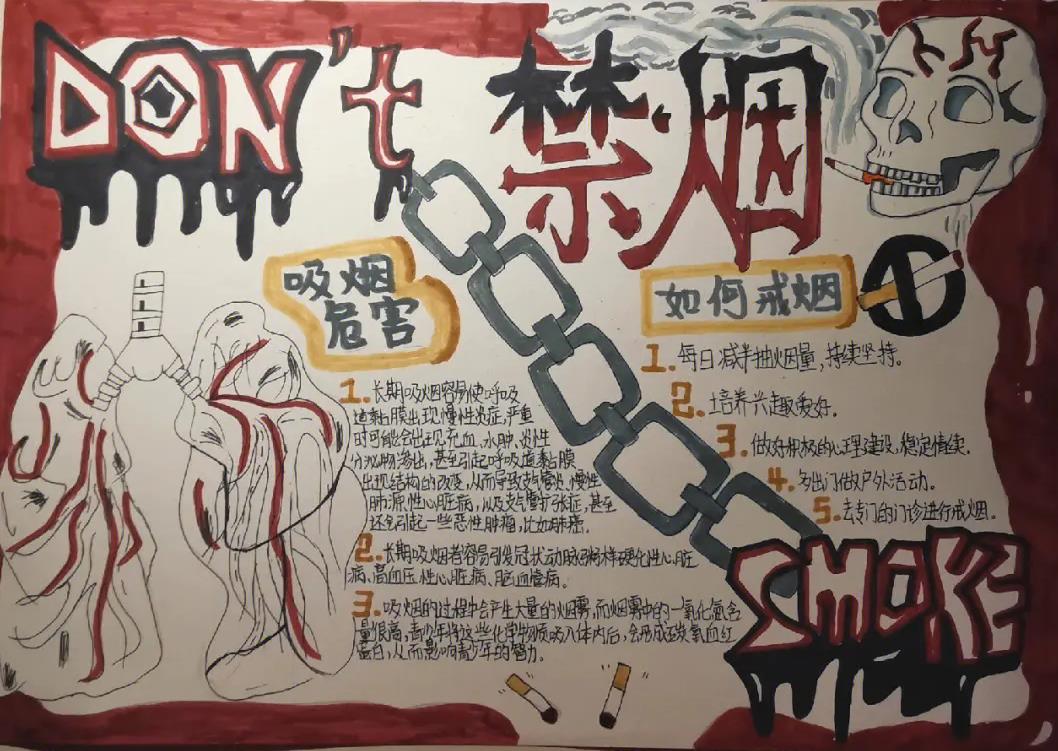 DON't
禁烟
吸烟
危害
1.长期吸烟容易使呼吸
道黏膜出现慢性炎症,严重
时可能会出现充血、水肿、炎性
分泌物渗出,甚至引起呼吸道黏膜
出现结构的改变,从而导致支气管炎、慢性
肺源性心脏病,以及支气管扩张症,甚至
还会引起一些恶性肿瘤,比如肺癌.
2.长期吸烟者容易引发冠状动脉粥样硬化性心脏
病、高血压性心脏病、脑血管病.
3.吸烟的过程中会产生大量的烟雾,而烟雾中的一氧化氮含
量很高,青少年将这些化学物质吸入体内后,会形成碳氧血红
蛋白,从而影响青少年的智力.
如何戒烟
1.每日减半抽烟量,持续坚持.
2.培养兴趣爱好.
3.做好积极的心理建设,稳定情绪.
4.多出门做户外活动.
5.去专门的门诊进行戒烟.
SMOKE